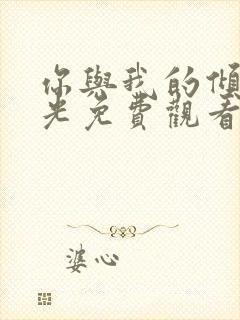 你與我的傾
光免費觀看
婆心